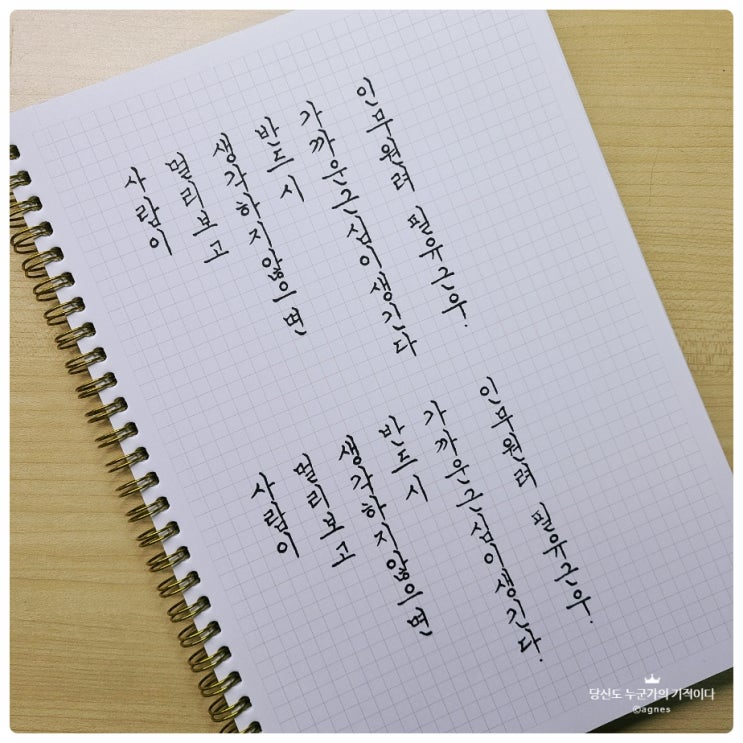 사람이
멀리보고
생각하지않으면
반드시
가까운근심이생긴다
인무원려 필유근우.
사람이
멀리보고
생각하지않으면
반드시
가까운근심이생긴다.
인무원려 필유근우.
당신도 누군가의 기적이다
©agnes